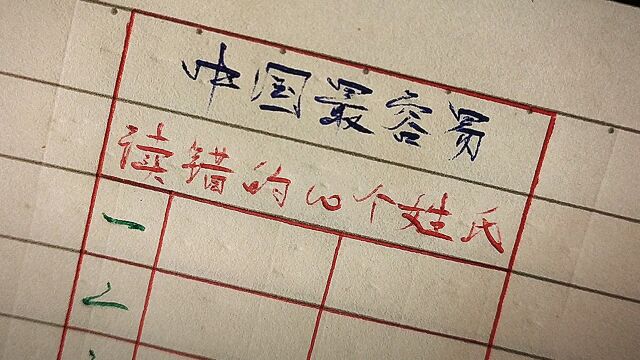 中国最容易
读错的10个姓氏
一
二